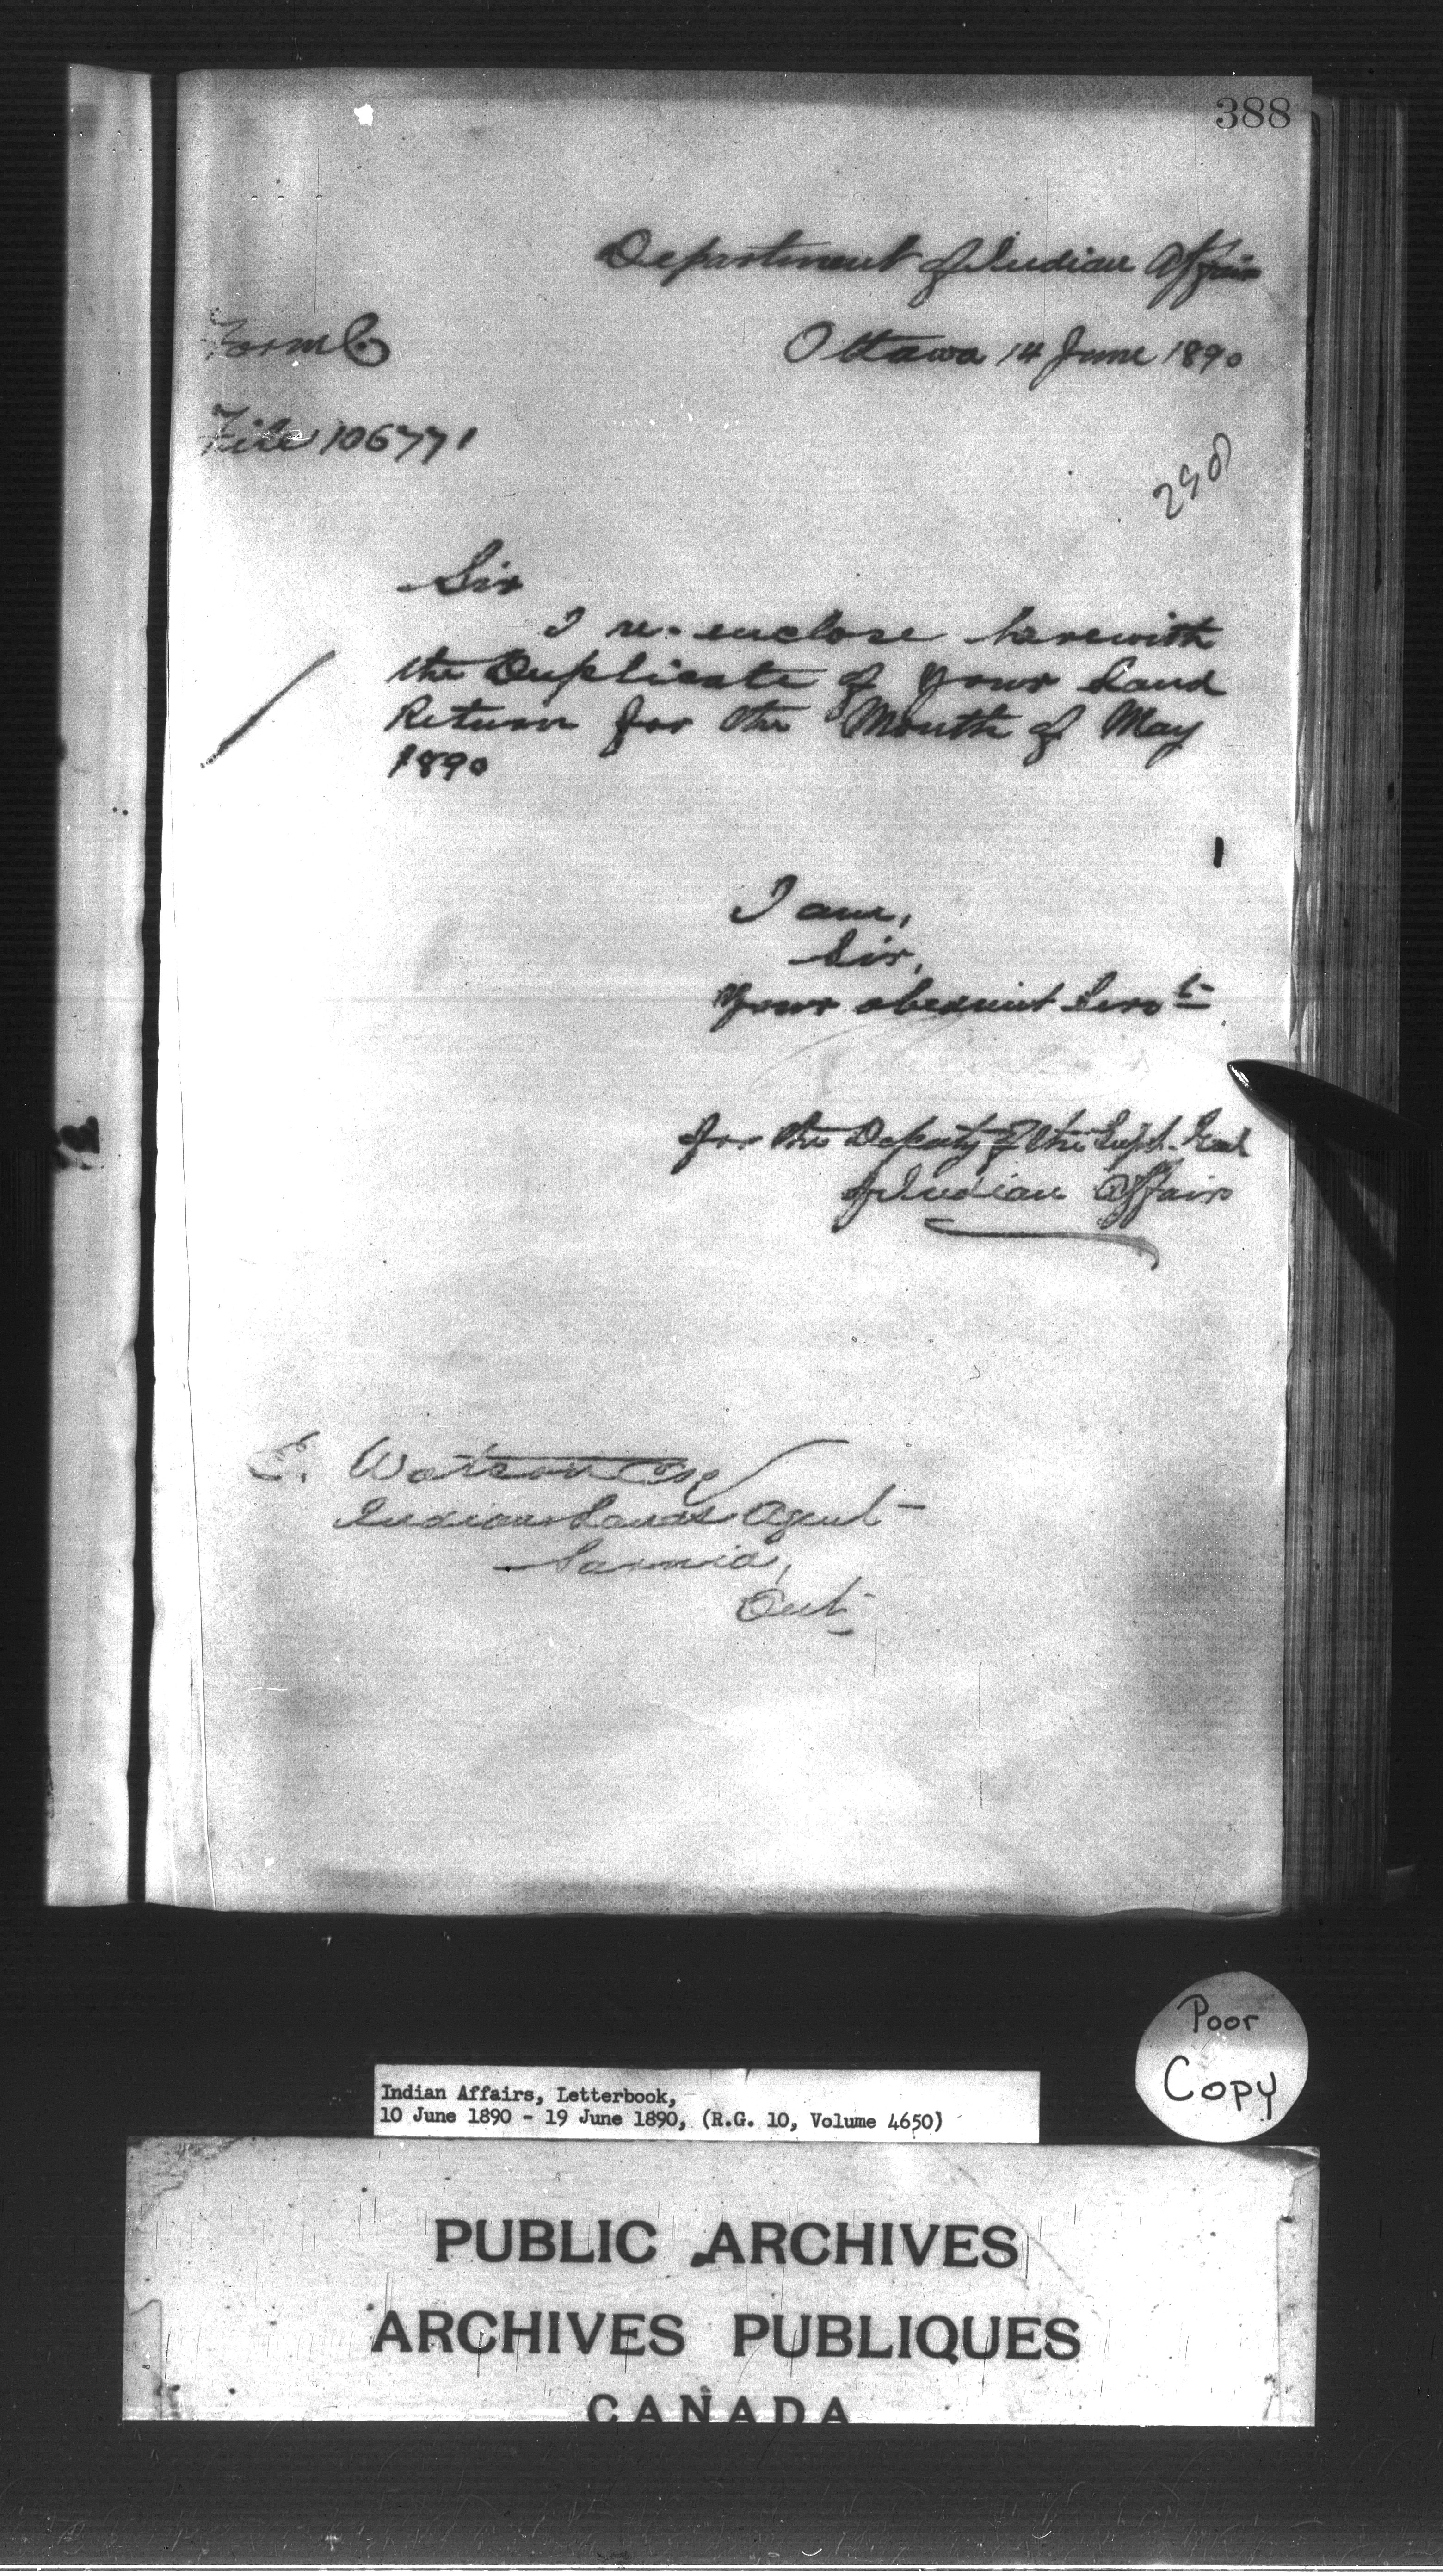 388
Department of Indian Affairs
Form C
Ottawa 14 June 1890
File 106771
Sir
I re-enclose herewith
the Duplicate of your Land
Return for the Month of May
1890
I am,
Sir,
Your obedient Servt
for the Deputy of the Supt. Genl
of Indian Affairs
E. Watson Esq
Indian Lands Agent
Sarnia,
Ont
Poor
Copy
Indian Affairs, Letterbook,
10 June 1890 - 19 June 1890, (R.G. 10, Volume 4650)
PUBLIC ARCHIVES
ARCHIVES PUBLIQUES
CANADA